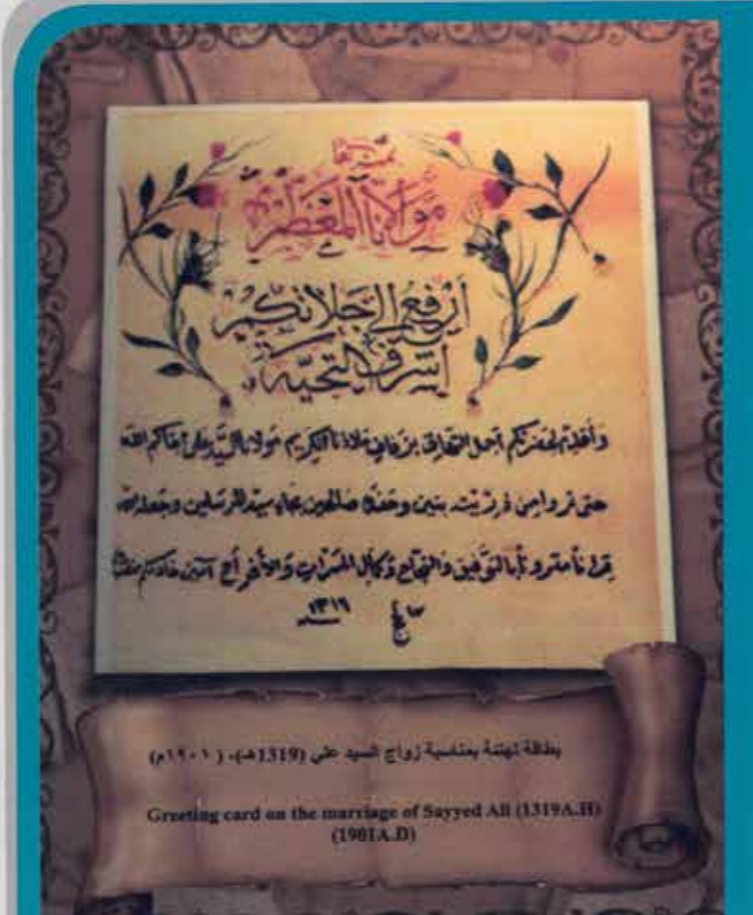 مولانا المعظم
أرفع إلى جلالتكم
أشرف التحية
وأقدم لحضرتكم أجمل التهاني بزفاف ملاذنا الكريم مولانا السيد علي أبقاكم الله
حتى تروا من ذريته بنين وحفدة صالحين بجاه سيد المرسلين وجعله الله
قرانا مقرونا بالتوفيق والنجاح وكمال المسرات والأفراح آمين خادمكم
١٣١٩
بطاقة تهنئة بمناسبة زواج السيد علي (1319هـ)، (١٩٠١م)
Greeting card on the marriage of Sayyed Ali (1319A.H)
(1901A.D)